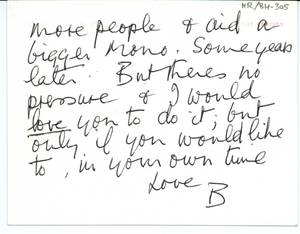 MR/BH-305
more people & aid a
bigger Mono. Some years
later. But theres no
pressure & I would
love you to do it, but
only if you would like
to, in your own time
Love B